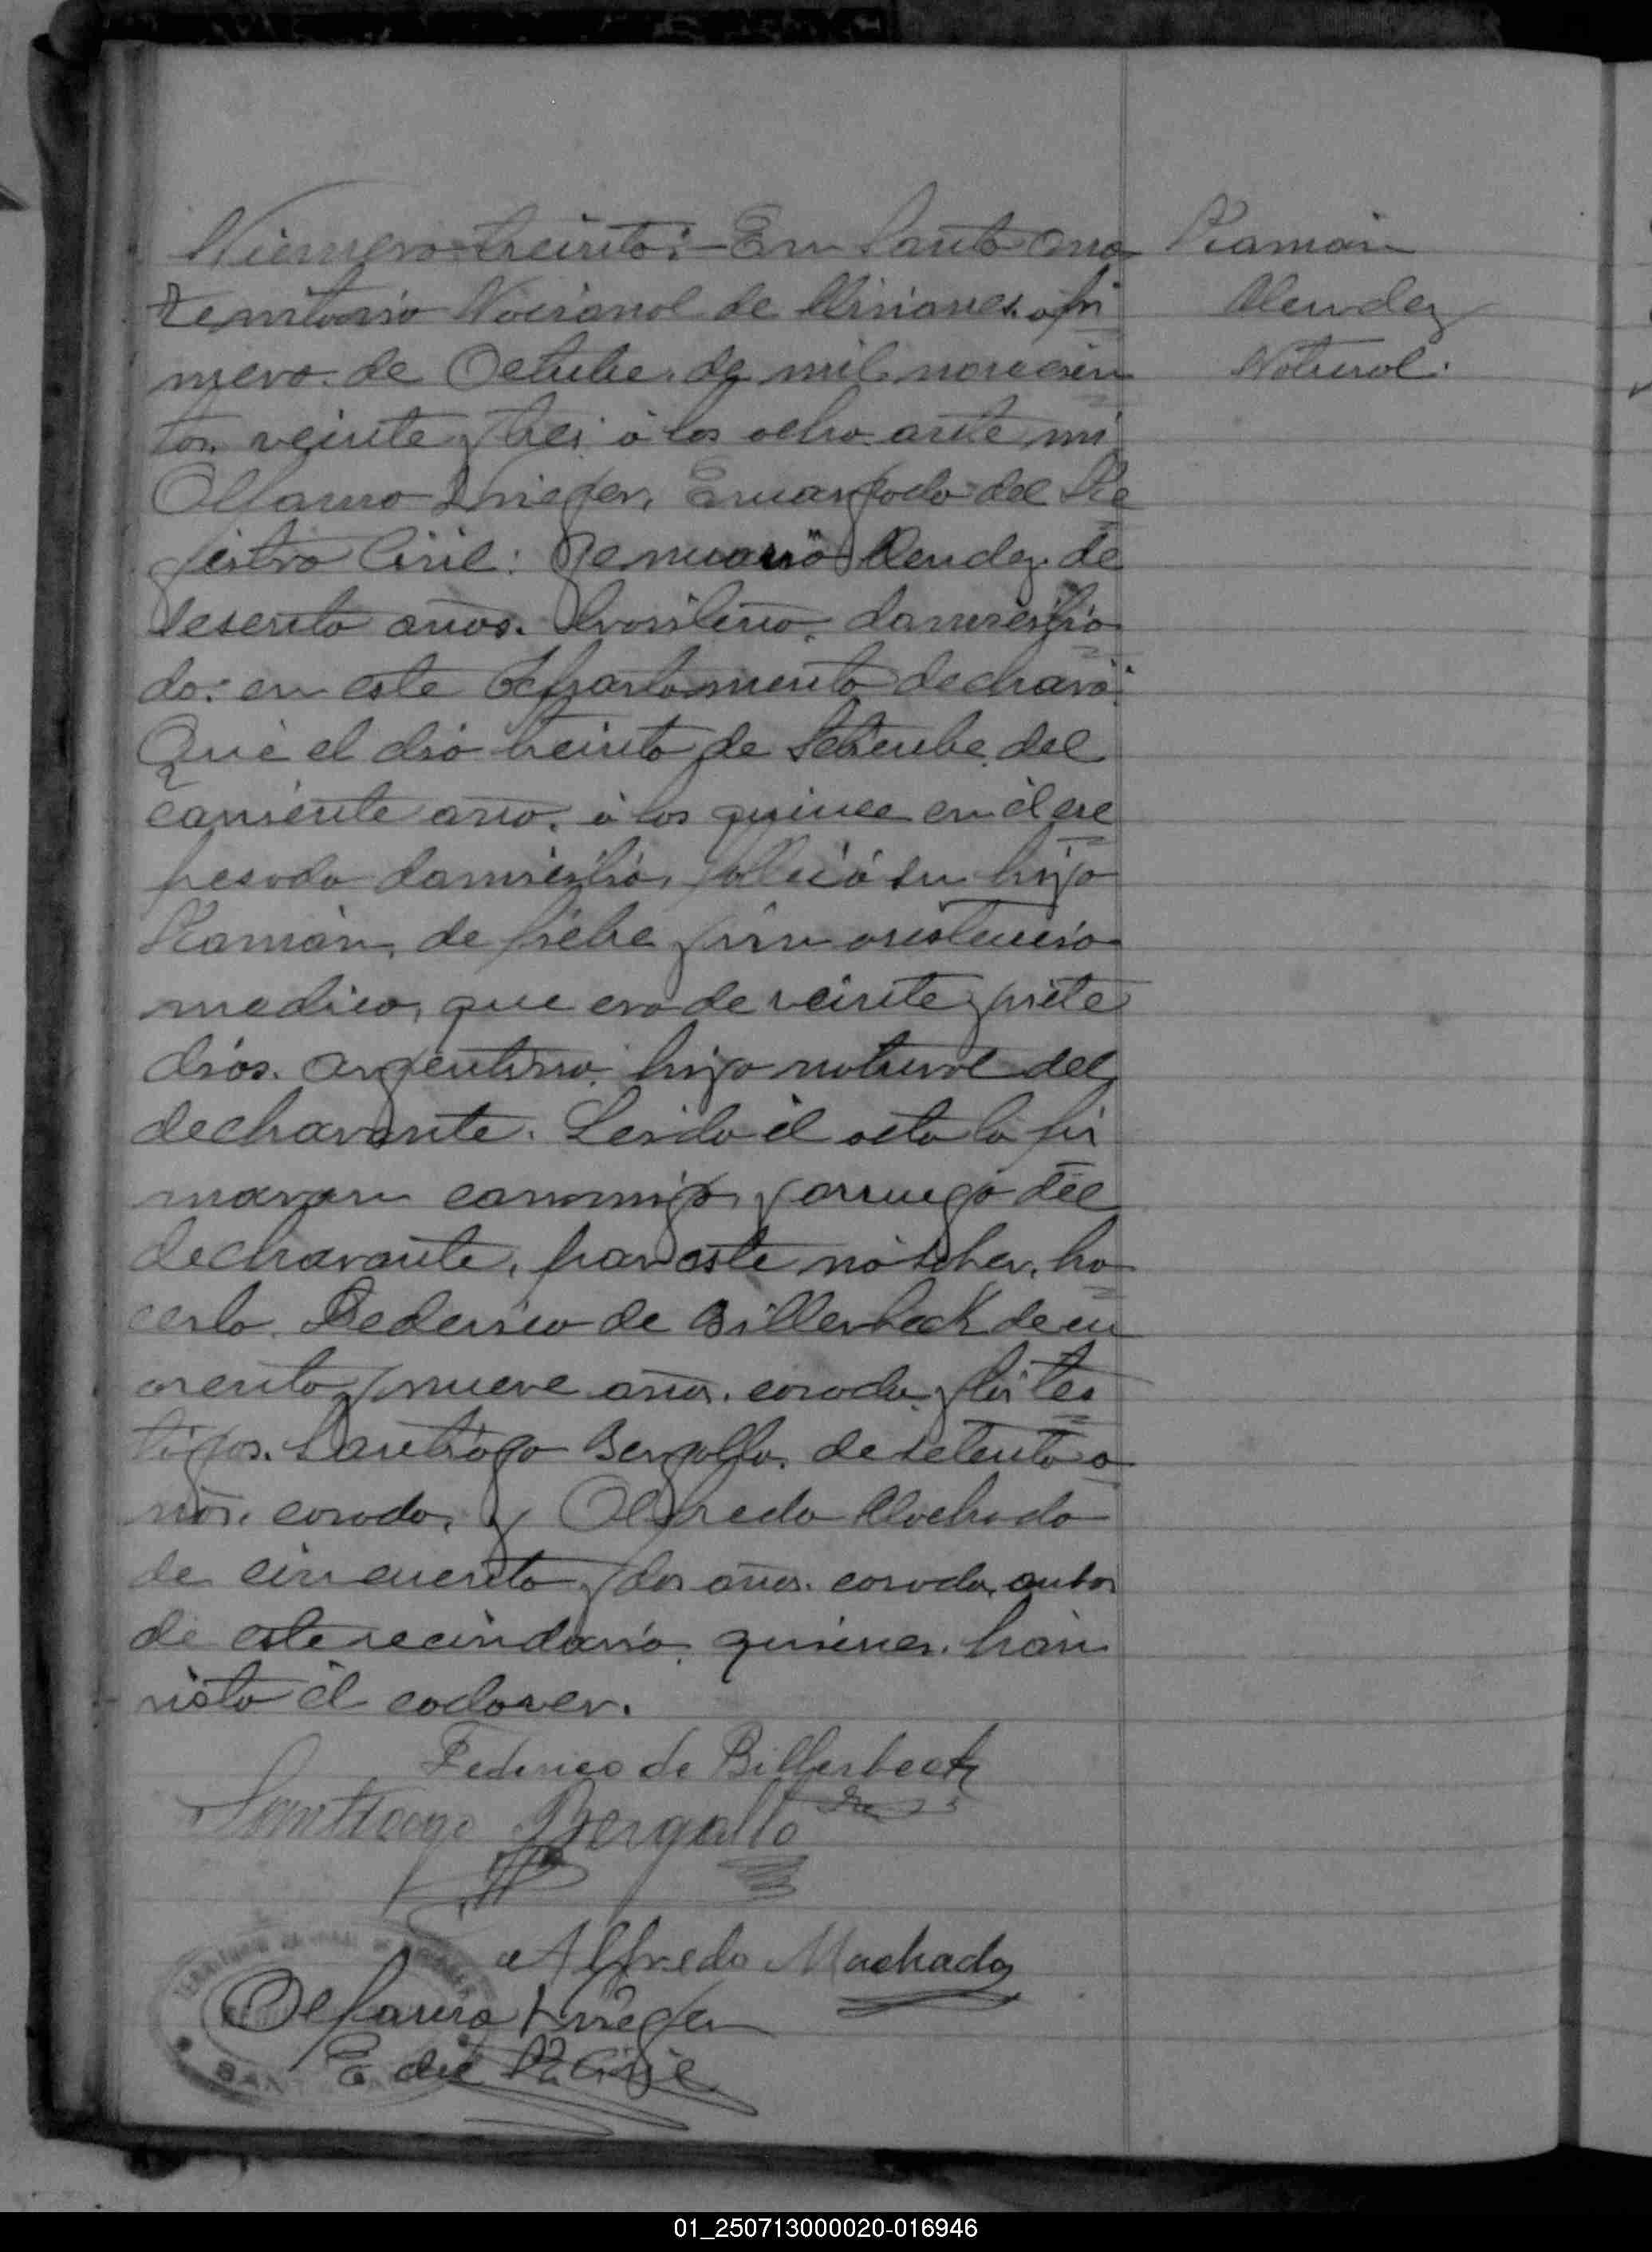 Número treinta:- En Santa Ana
Territorio Nacional de Misiones. a pri
mero de Octubre de mil novecien
tos veinte y tres á las ocho ante mi
Krieger, Encargado del Re
gistro Civil: Genuario Mendez de
sesenta años. brasileño, domicilia
do: en este departamento declaró:
Que el dia treinta de Setiembe del
corriente año, á las quince en él ex
presado domicilio, falleció su hijo
Ramón, de fiebe sin asistencia
medica, que era de veinte y siete
dias. argentino. hijo natural del
declarante. Leida él acta la fir
maron conmigo, y a ruego del
declarante, por este nó saber, ha
cerlo. Federico de Billerbeck de cu
arenta y nueve años. casado, y los tes
tigos. Santiago Bergallo, de setenta a
ños, casado, y Alfredo Machado
de cincuenta y dos años. casado, ambos
de este vecindario, quienes. han
visto él cadaver.
Federico de Billerbeck
Santtiago Bergallo
Alfredo Machado
Krieger
E del R. Civil
Ramón
Mendez
Natural.
01_250713000020-016946